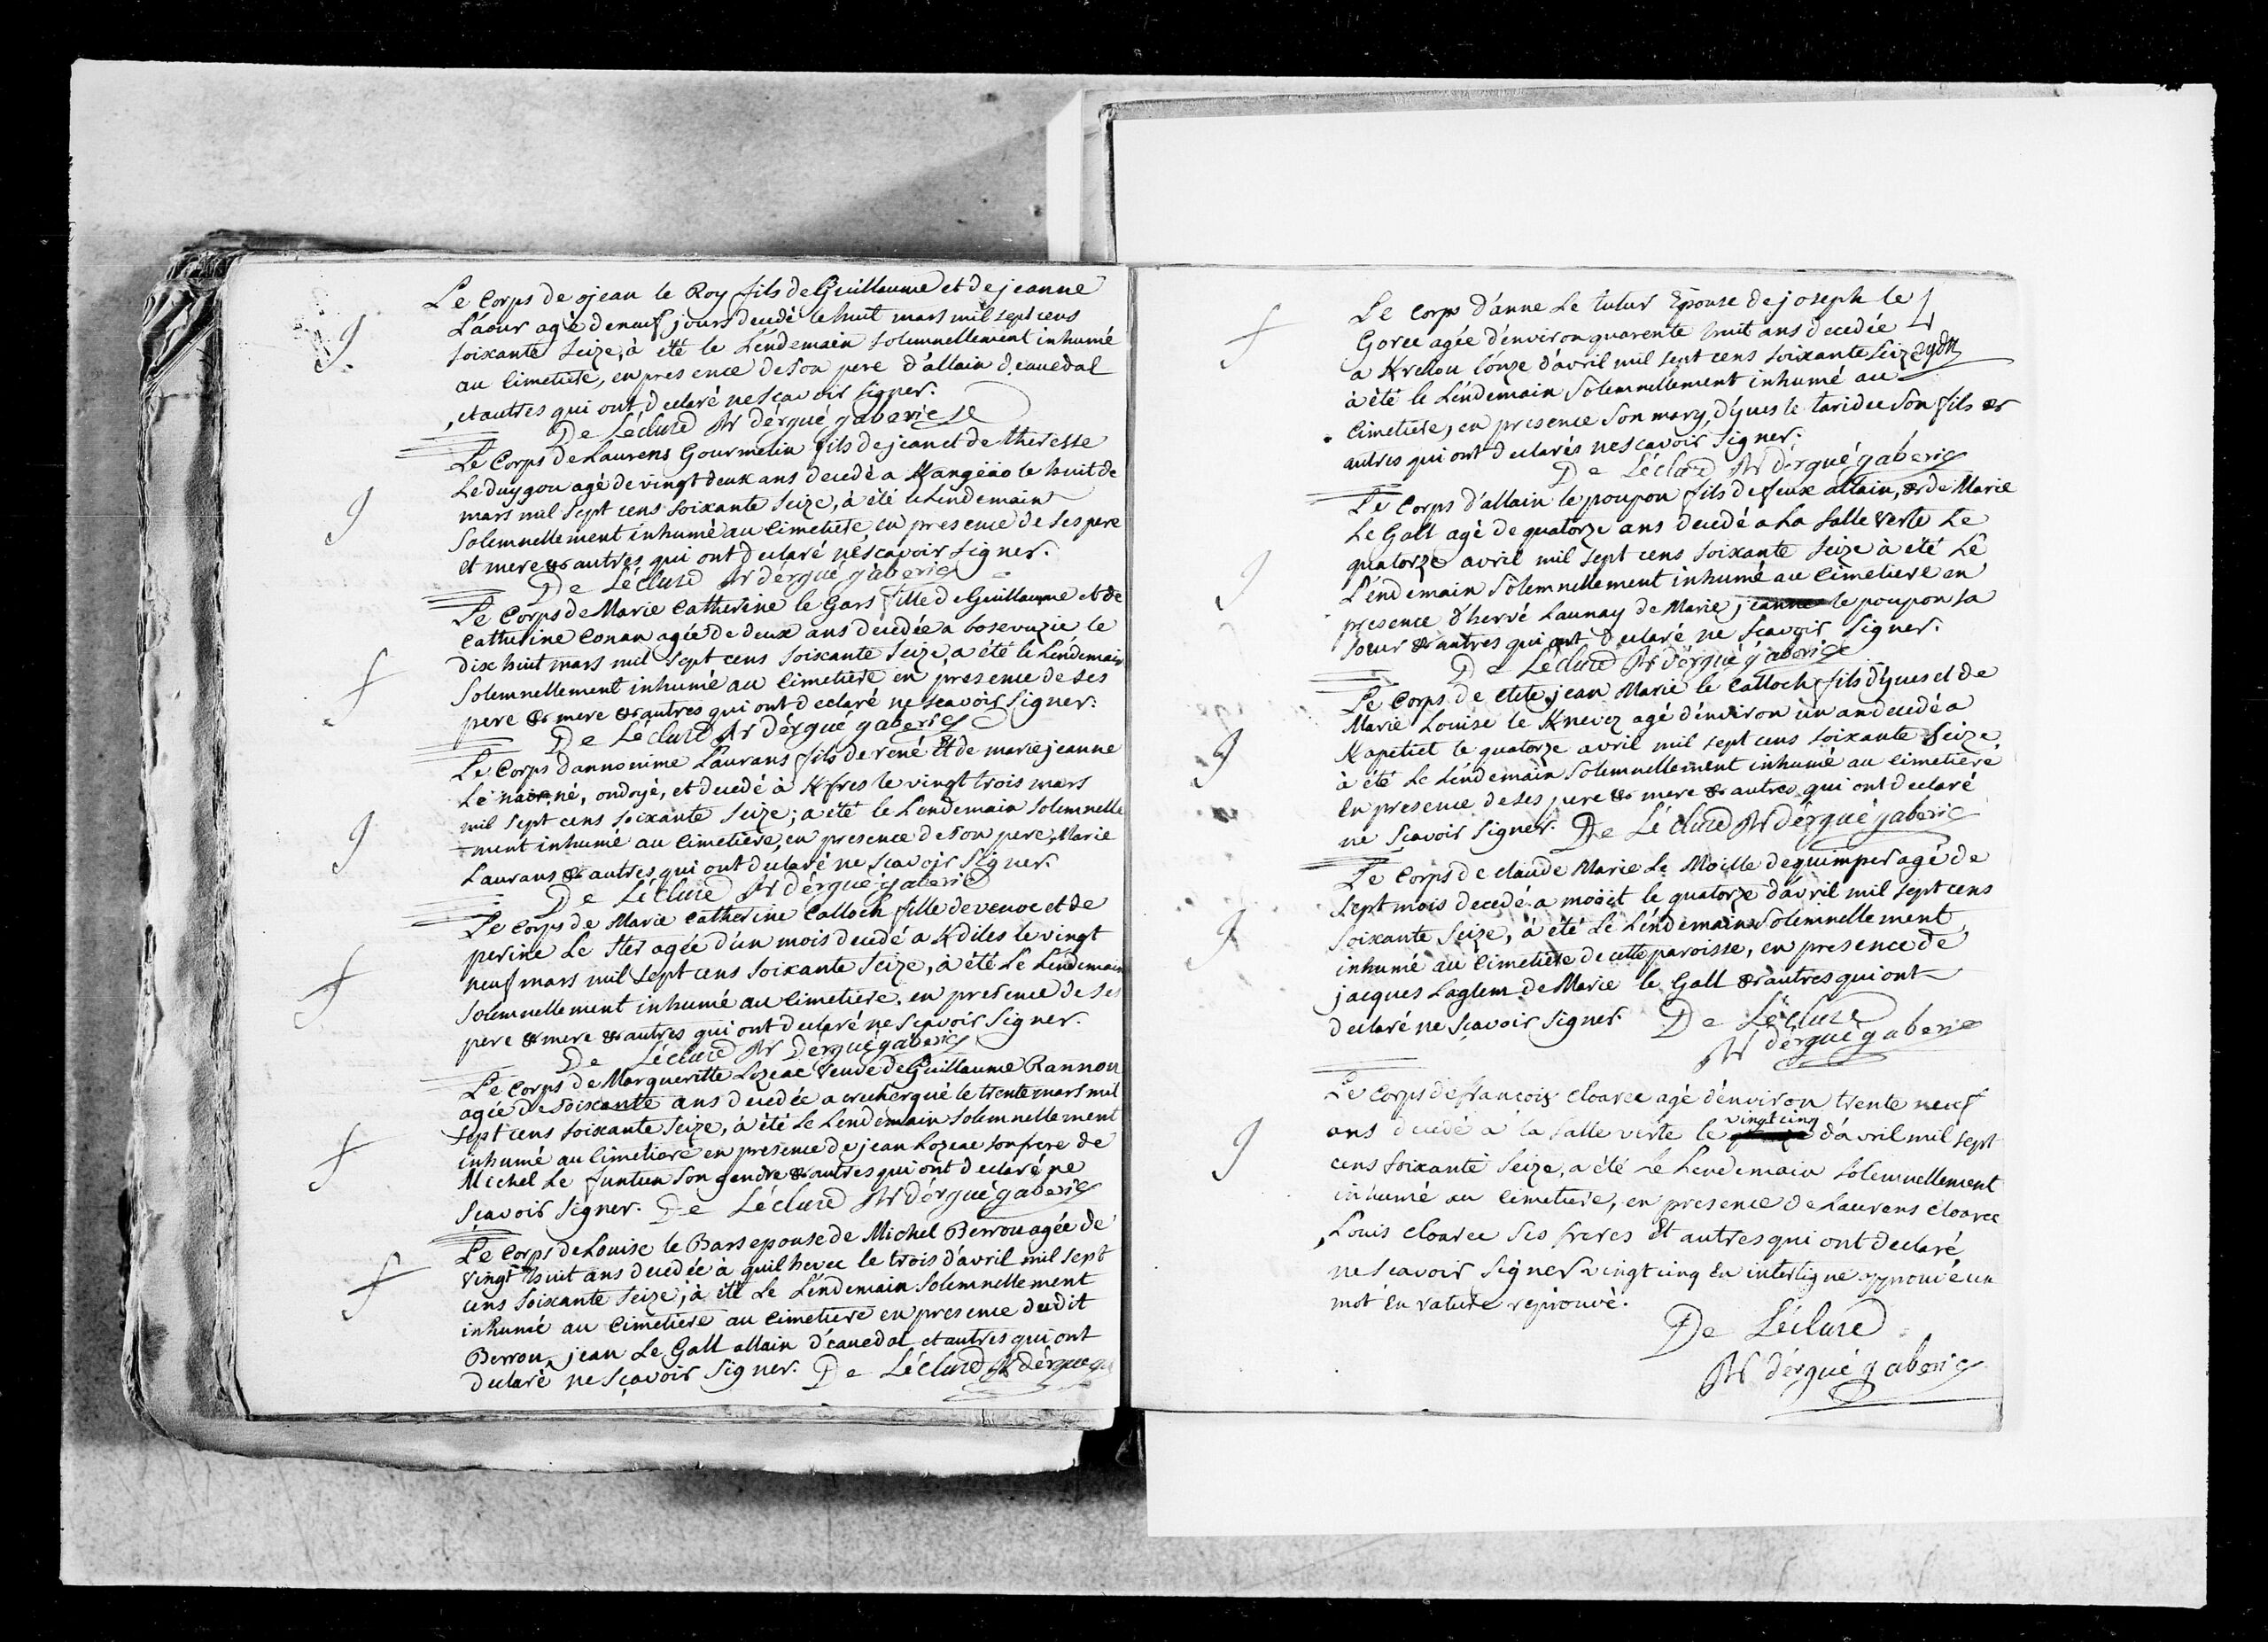 Le Corps de jean le Roy fils de Guillaume et de jeanne
L'aour agé de neuf jours decedé le huit mars mil sept cens
soixante seize, à été le Lendemain solemnellement inhumé
au Cimetiere, en presence de son pere d'allain deauedal
, et autres qui ont declaré ne sçavoir signer.
De Lécluze Rr dérgué gaberic
Le Corps de Laurens Gourmelin fils de jean et de theresse
Le duygou agé de vingt deux ans decedé a le huit de
mars mil sept cens soixante seize, à été le Lendemain
solemnellement inhumé au Cimetiere, en presence de ses pere
et mere & autres qui ont declaré ne sçavoir signer.
De Lécluze Rr dérgué gaberic
Le Corps de Marie Catherine le Gars fille de Guillaume et de
Catherine Conan agée de deux ans decedée a le
dix huit mars mil sept cens soixante seize, a été le Lendemain
solemnellement inhumé au Cimetiere en presence de ses
pere & mere & autres qui ont declaré ne sçavoir signer.
De Lécluze Rr dérgué gaberic
Le Corps dannonime Laurans fils de rené Et de marie jeanne
Lé né, ondoyé, et decedé à le vingt trois mars
mil sept cens soixante seize; a été le Lendemain solemnelle
-ment inhumé au Cimetiere, en presence de son pere, Marie
Laurans & autres qui ont declaré ne sçavoir signer.
De Lécluze Rr dérgué gaberic
Le Corps de Marie Catherine Calloch fille de et de
perine Le Ster agée d'un mois decedé a Kdiles le vingt
neuf mars mil sept cens soixante seize, à été Le Lendemain
solemnellement inhumé au Cimetiere, en presence de ses
pere & mere & autres qui ont declaré ne sçavoir signer.
De Lécluze Rr Dérgué gaberic
Le Corps de Margueritte Lozeac veuve de Guillaume Rannou
agée de soixante ans decedée a le trente mars mil
sept cens soixante seize, à été Le Lendemain solemnellement
inhumé au Cimetiere en presence de jean Lozeac son frere de
Michel Le funtun son gendre & autres qui ont declaré ne
sçavoir signer. De Lécluze Rr dérgué gaberic
Le Corps de Louise le Bars epouse de Michel Berrou agée de
vingt huit ans decedée à quilhevec le trois d'avril mil sept
cens soixante seize, à été Le Lendemain solemnellement
inhumé au Cimetiere au Cimetiere en presence dudit
Berrou, jean Le Gall allain d'eauedal et autres qui ont
declaré ne sçavoir signer. De Lécluze Rr dérgué
Le Corps d'anne Le tutur Epouse de joseph le
Gorec agée d'environ quarente huit ans decedée
a Krelou l'onze d'avril mil sept cens soixante seize
à été le Lendemain solemnellement inhumé au
Cimetiere, en presence son mary, d'yves le taridec son fils &
autres qui ont declarés ne sçavoir signer.
De Lécluze Rr dérgué gaberic
Le Corps d'allain le poupon fils de feux allain, & de Marie
Le Gall agé de quatorze ans decedé a La salle verte Le
quatorze avril mil sept cens soixante seize à été Lé
L'endemain solemnellement inhumé au Cimetiere en
presence d'hervé Launay de Marie jeanne le poupon sa
soeur & autres qui ont declaré ne sçavoir signer.
De Lécluze Rr dérgué gaberic
Le Corps de jean Marie le Calloch fils d'yves et de
Marie Louise le Knevez agé d'environ un an decedé a
le quatorze avril mil sept cens soixante seize,
à été Le Lendemain solemnellement inhumé au Cimetiere
en presence de ses pere & mere & autres qui ont declaré
ne sçavoir signer. De Lécluze Rr dérgué gaberic
Le Corps de claude Marie Le Moille de quimper agé de
sept mois decedé a le quatorze d'avril mil sept cens
soixante seize, à été Lé Lendemain solemnellement
inhumé au Cimetiere de cette paroisse, en presence de
jacques Laglem de Marie le Gall & autres qui ont
declaré ne sçavoir signer. De Lécluze
Rr dérgué gaberic
Le Corps de francois cloarec agé d'environ trente neuf
vingt cinq
ans decedé à la salle verte le d'avril mil sept
cens soixante seize, a été Le Lendemain solemnellement
inhumé au Cimetiere, en presence de Laurens cloarec
, Louis cloarec ses freres Et autres qui ont declaré
ne sçavoir signer vingt cinq En interligne approuvé un
mot En rature reprouvé.
De Lécluze
Rr dérgué gaberic